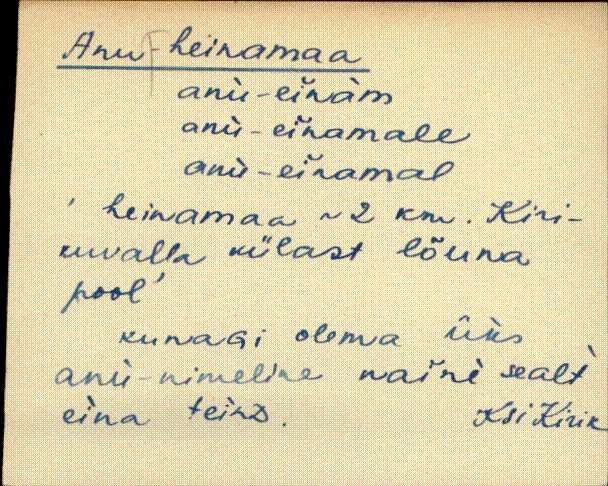 Anu-heinamaa
anù-eĭnàm
anù-eĭnamale
anù-eĭnamal
' heinamaa ~2 km. Kiri-
kuvalla külast lõuna
pool'
kunagi olema üks
anù-nimeline naĭnè sealt
eina teinD. Ksi Kirik